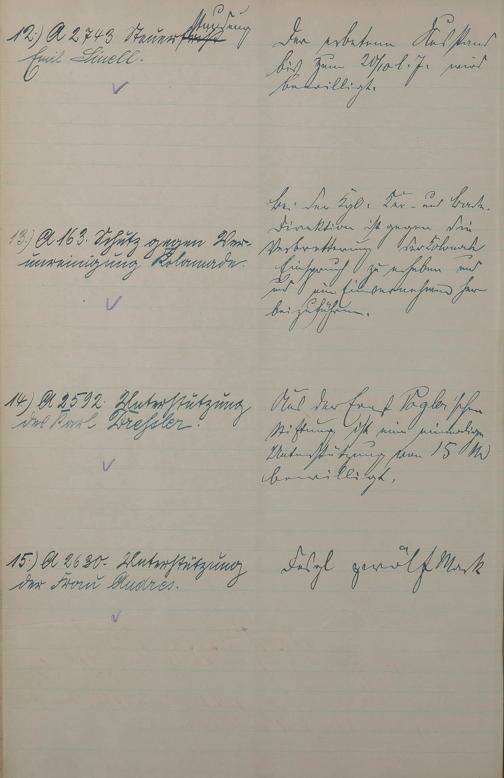 12.) A 2743 Steuerstundung
Emil Linell.
Der erbetene Ausstand
bis zum 20/10 l. J. wird
bewilligt.
13.) A 163. Schutz gegen Ver-
unreinigung Kolonnade.
Bei der Kgl. Kur- und Bade-
direktion ist gegen die
Verbretterung der Kolonnade
Einspruch zu erheben und
und ein Einvernehmen her-
beizuführen.
14) A 2592. Unterstützung
des Karl Drechsler.
Aus der Ernst Vogler'schen
Stiftung ist eine einmalige
Unterstützung von 15 M
bewilligt.
15.) A 2630. Unterstützung
der Frau Andres.
Desgl zwölf Mark